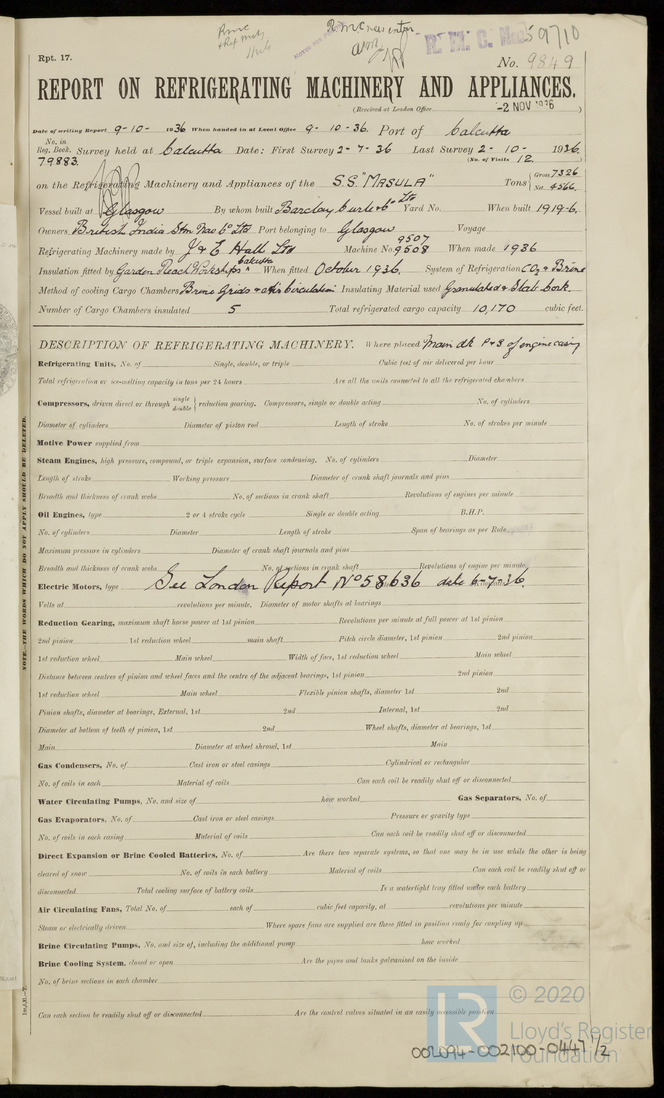 Rpt. 17.
R.M.C. No. 59710
No. 9849
REPORT ON REFRIGERATING MACHINERY AND APPLIANCES.
(Received at London Office -2 NOV 1936)
Date of writing Report 9-10- 1936 When handed in at Local Office 9-10-36. Port of Calcutta
No. in Reg. Book. Survey held at Calcutta Date: First Survey 2-7-36 Last Survey 2-10- 1936.
79883. (No. of Visits 12.
on the Refrigerating Machinery and Appliances of the S.S. "MASULA" Tons { Gross 7326 Net 4566.
Vessel built at Glasgow By whom built Barclay Curle & Co Ltd Yard No. When built 1919-6.
Owners British India Stm Nav Co Ltd Port belonging to Glasgow Voyage
Refrigerating Machinery made by J & E Hall Ltd Machine No. 9507 9508 When made 1936
Insulation fitted by Garden Reach Workshops Calcutta When fitted October 1936. System of Refrigeration CO2 & Brine
Method of cooling Cargo Chambers Brine Grids & Air Circulation Insulating Material used Granulated & Slab Cork.
Number of Cargo Chambers insulated 5 Total refrigerated cargo capacity 10,170 cubic feet.
DESCRIPTION OF REFRIGERATING MACHINERY. Where placed Main dk P & S of engine casing
Refrigerating Units, No. of Single, double, or triple Cubic feet of air delivered per hour
Total refrigeration or ice-melting capacity in tons per 24 hours Are all the units connected to all the refrigerated chambers
Compressors, driven direct or through single double } reduction gearing. Compressors, single or double acting No. of cylinders
Diameter of cylinders Diameter of piston rod Length of stroke No. of strokes per minute
Motive Power supplied from
Steam Engines, high pressure, compound, or triple expansion, surface condensing. No. of cylinders Diameter
Length of stroke Working pressure Diameter of crank shaft journals and pins
Breadth and thickness of crank webs No. of sections in crank shaft Revolutions of engines per minute
Oil Engines, type 2 or 4 stroke cycle Single or double acting B.H.P.
No. of cylinders Diameter Length of stroke Span of bearings as per Rule
Maximum pressure in cylinders Diameter of crank shaft journals and pins
Breadth and thickness of crank webs No. of sections in crank shaft Revolutions of engine per minute
Electric Motors, type See London Report No 58636 date 6-7-36.
Volts at revolutions per minute, Diameter of motor shafts at bearings
Reduction Gearing, maximum shaft horse power at 1st pinion Revolutions per minute at full power at 1st pinion
2nd pinion 1st reduction wheel main shaft Pitch circle diameter, 1st pinion 2nd pinion
1st reduction wheel Main wheel Width of face, 1st reduction wheel Main wheel
Distance between centres of pinion and wheel faces and the centre of the adjacent bearings, 1st pinion 2nd pinion
1st reduction wheel Main wheel Flexible pinion shafts, diameter 1st 2nd
Pinion shafts, diameter at bearings, External, 1st 2nd Internal, 1st 2nd
Diameter at bottom of teeth of pinion, 1st 2nd Wheel shafts, diameter at bearings, 1st
Main Diameter at wheel shroud, 1st Main
Gas Condensers, No. of Cast iron or steel casings Cylindrical or rectangular
No. of coils in each Material of coils Can each coil be readily shut off or disconnected
Water Circulating Pumps, No. and size of how worked Gas Separators, No. of
Gas Evaporators, No. of Cast iron or steel casings Pressure or gravity type
No. of coils in each casing Material of coils Can each coil be readily shut off or disconnected
Direct Expansion or Brine Cooled Batteries, No. of Are there two separate systems, so that one may be in use while the other is being
cleared of snow No. of coils in each battery Material of coils Can each coil be readily shut off or
disconnected Total cooling surface of battery coils Is a watertight tray fitted under each battery
Air Circulating Fans, Total No. of each of cubic feet capacity, at revolutions per minute
Steam or electrically driven Where spare fans are supplied are these fitted in position ready for coupling up
Brine Circulating Pumps, No. and size of, including the additional pump how worked
Brine Cooling System, closed or open Are the pipes and tanks galvanised on the inside
No. of brine sections in each chamber
Can each section be readily shut off or disconnected Are the control valves situated in an easily accessible position
NOTE.—THE WORDS WHICH DO NOT APPLY SHOULD BE DELETED.
© 2020
LR
Lloyd's Register
Foundation
002094-002100-0447 1/2